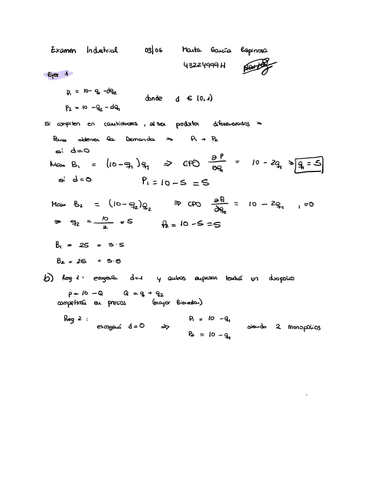 Examen Industrial 03/06 Marta García Espinosa
43224999H
Ejer 1
P₁ = 10 - q₁ - dq₂
P₂ = 10 - q₂ - dq₁ donde d ∈ (0,1)
Si compiten en cantidades, al ser productos diferenciados ⇒
Para obtener la Demanda ⇒ P₁ + P₂
si d=0
Max B₁ = (10-q₁)q₁ ⇒ CPO = 10 - 2q₁ ⇒ q₁ = 5
si d=0 P₁ = 10 - 5 = 5
Max B₂ = (10-q₂)q₂ ⇒ CPO = 10 - 2q₂ , =0
⇒ q₂ = 10/2 = 5 P₂ = 10 - 5 = 5
B₁ = 25 = 5·5
B₂ = 25 = 5·5
b) Reg 1: d=1 y ambas empresas un duopolio
P = 10 - Q Q = q₁ + q₂
en precios (mayor Bienestar)
Reg 2:
escogerá d=0 ⇒ P₁ = 10 - q₁ siendo 2 monopolios
P₂ = 10 - q₂